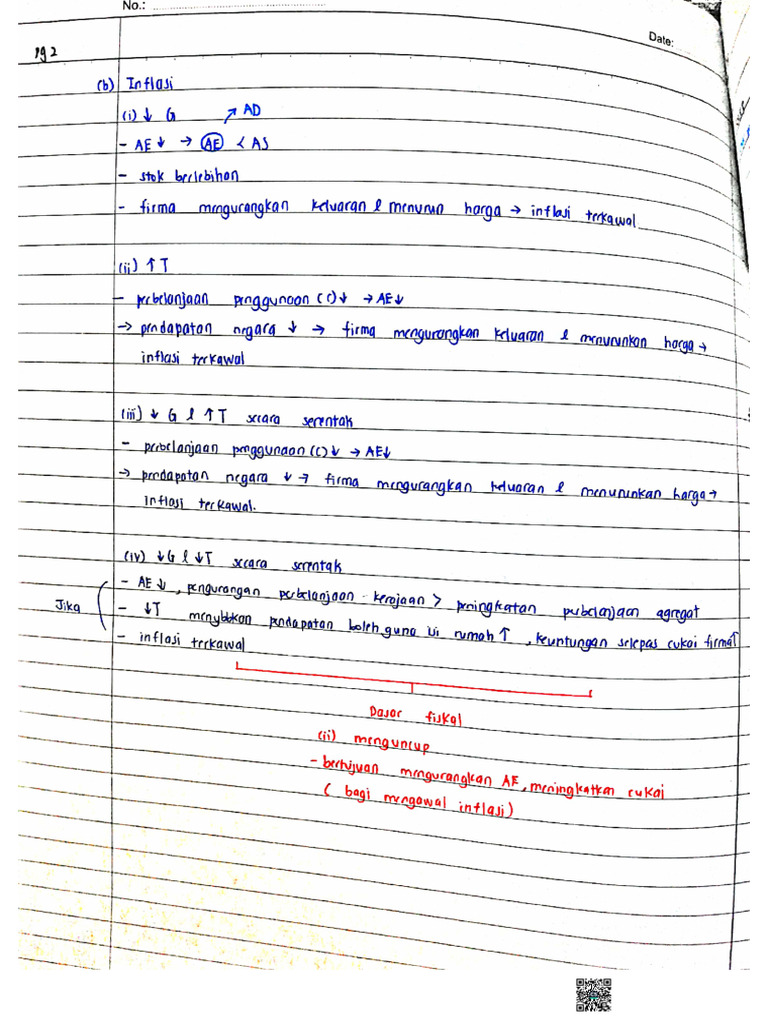 No.:
Date:
pg 2
(b) Inflasi
(i) ↓ G ↗ AD
- AE ↓ → AE < AS
- stok berlebihan
- firma mengurangkan keluaran & menurun harga → inflasi terkawal
(ii) ↑ T
- perbelanjaan penggunaan (C) ↓ → AE↓
→ pendapatan negara ↓ → firma mengurangkan keluaran & menurunkan harga →
inflasi terkawal
(iii) ↓ G & ↑ T secara serentak
- perbelanjaan penggunaan (C) ↓ → AE↓
→ pendapatan negara ↓ → firma mengurangkan keluaran & menurunkan harga →
inflasi terkawal.
(iv) ↓G & ↓T secara serentak
- AE ↓, pengurangan perbelanjaan kerajaan > peningkatan perbelanjaan agregat
Jika ( - ↓T menybbkan pendapatan boleh guna isi rumah ↑, keuntungan selepas cukai firma↑
- inflasi terkawal
Dasar fiskal
(ii) menguncup
- bertujuan mengurangkan AE, meningkatkan cukai
( bagi mengawal inflasi)